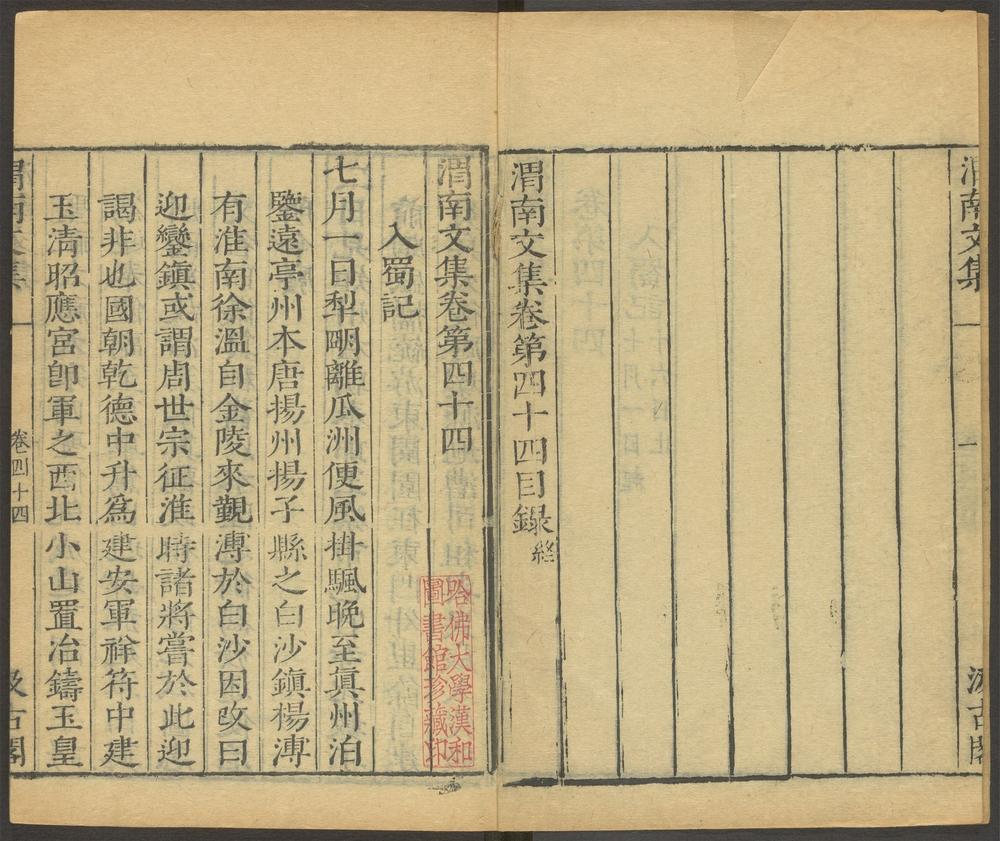 渭南文集
一
汲古閣
渭南文集卷第四十四目錄終
渭南文集卷第四十四
哈佛大學漢和
圖書館珍藏印
入蜀記
七月一日犁明離瓜洲便風掛颿晚至眞州泊
鑒遠亭州本唐揚州揚子縣之白沙鎮楊溥
有淮南徐溫自金陵來覲溥於白沙因改曰
迎鑾鎮或謂周世宗征淮時諸將嘗於此迎
謁非也國朝乾德中升爲建安軍祥符中建
玉清昭應宮卽軍之西北小山置冶鑄玉皇
渭南文集
卷四十四
一
汲古閣